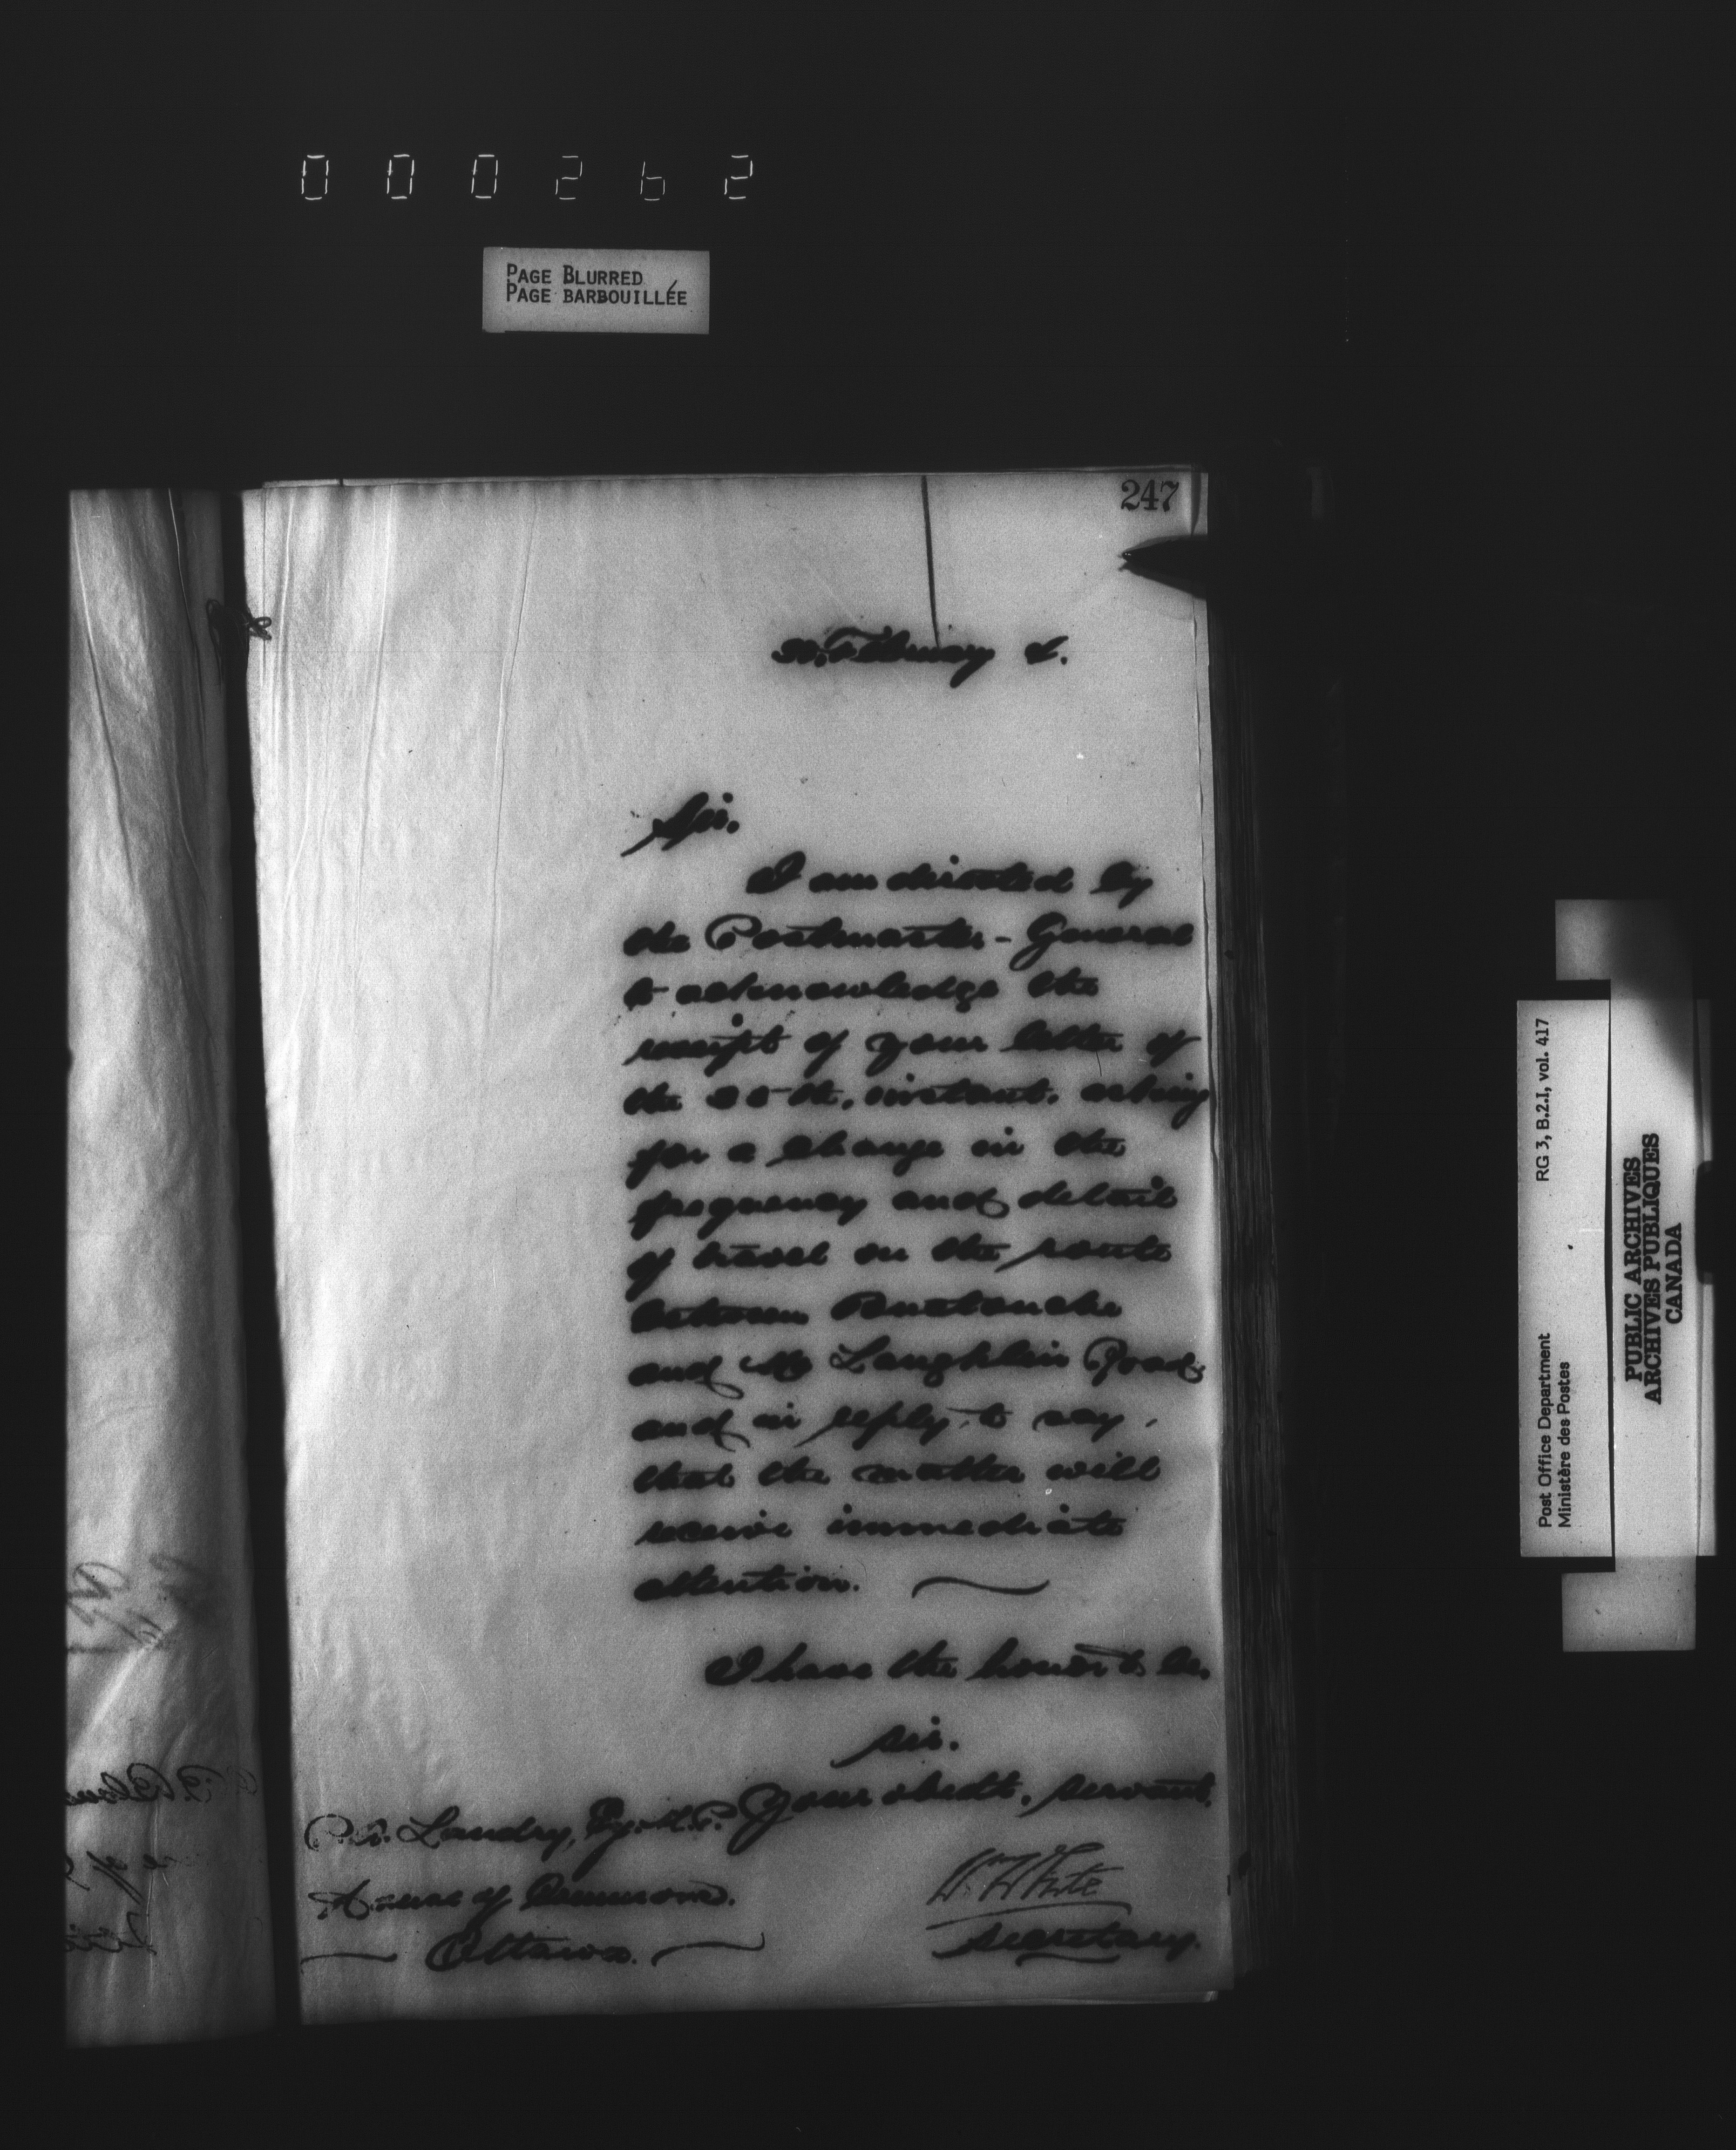 000262
PAGE BLURRED
PAGE BARBOUILLÉE
247
February
Sir.
I am directed by
the Postmaster-General
to acknowledge the
receipt of your letter of
the instant, asking
for a change in the
frequency and detail
of travel on the route
between Buctouche
and Mc Laughlin Road,
and in reply, to say,
that the matter will
receive immediate
attention.
I have the honor to be.
sir.
Your obedt. servant.
P.A. Landry, Esq. M.P.
House of Commons.
Ottawa.
Wm White
Secretary.
Post Office Department RG 3, B.2.I, vol. 417
Ministère des Postes
PUBLIC ARCHIVES
ARCHIVES PUBLIQUES
CANADA